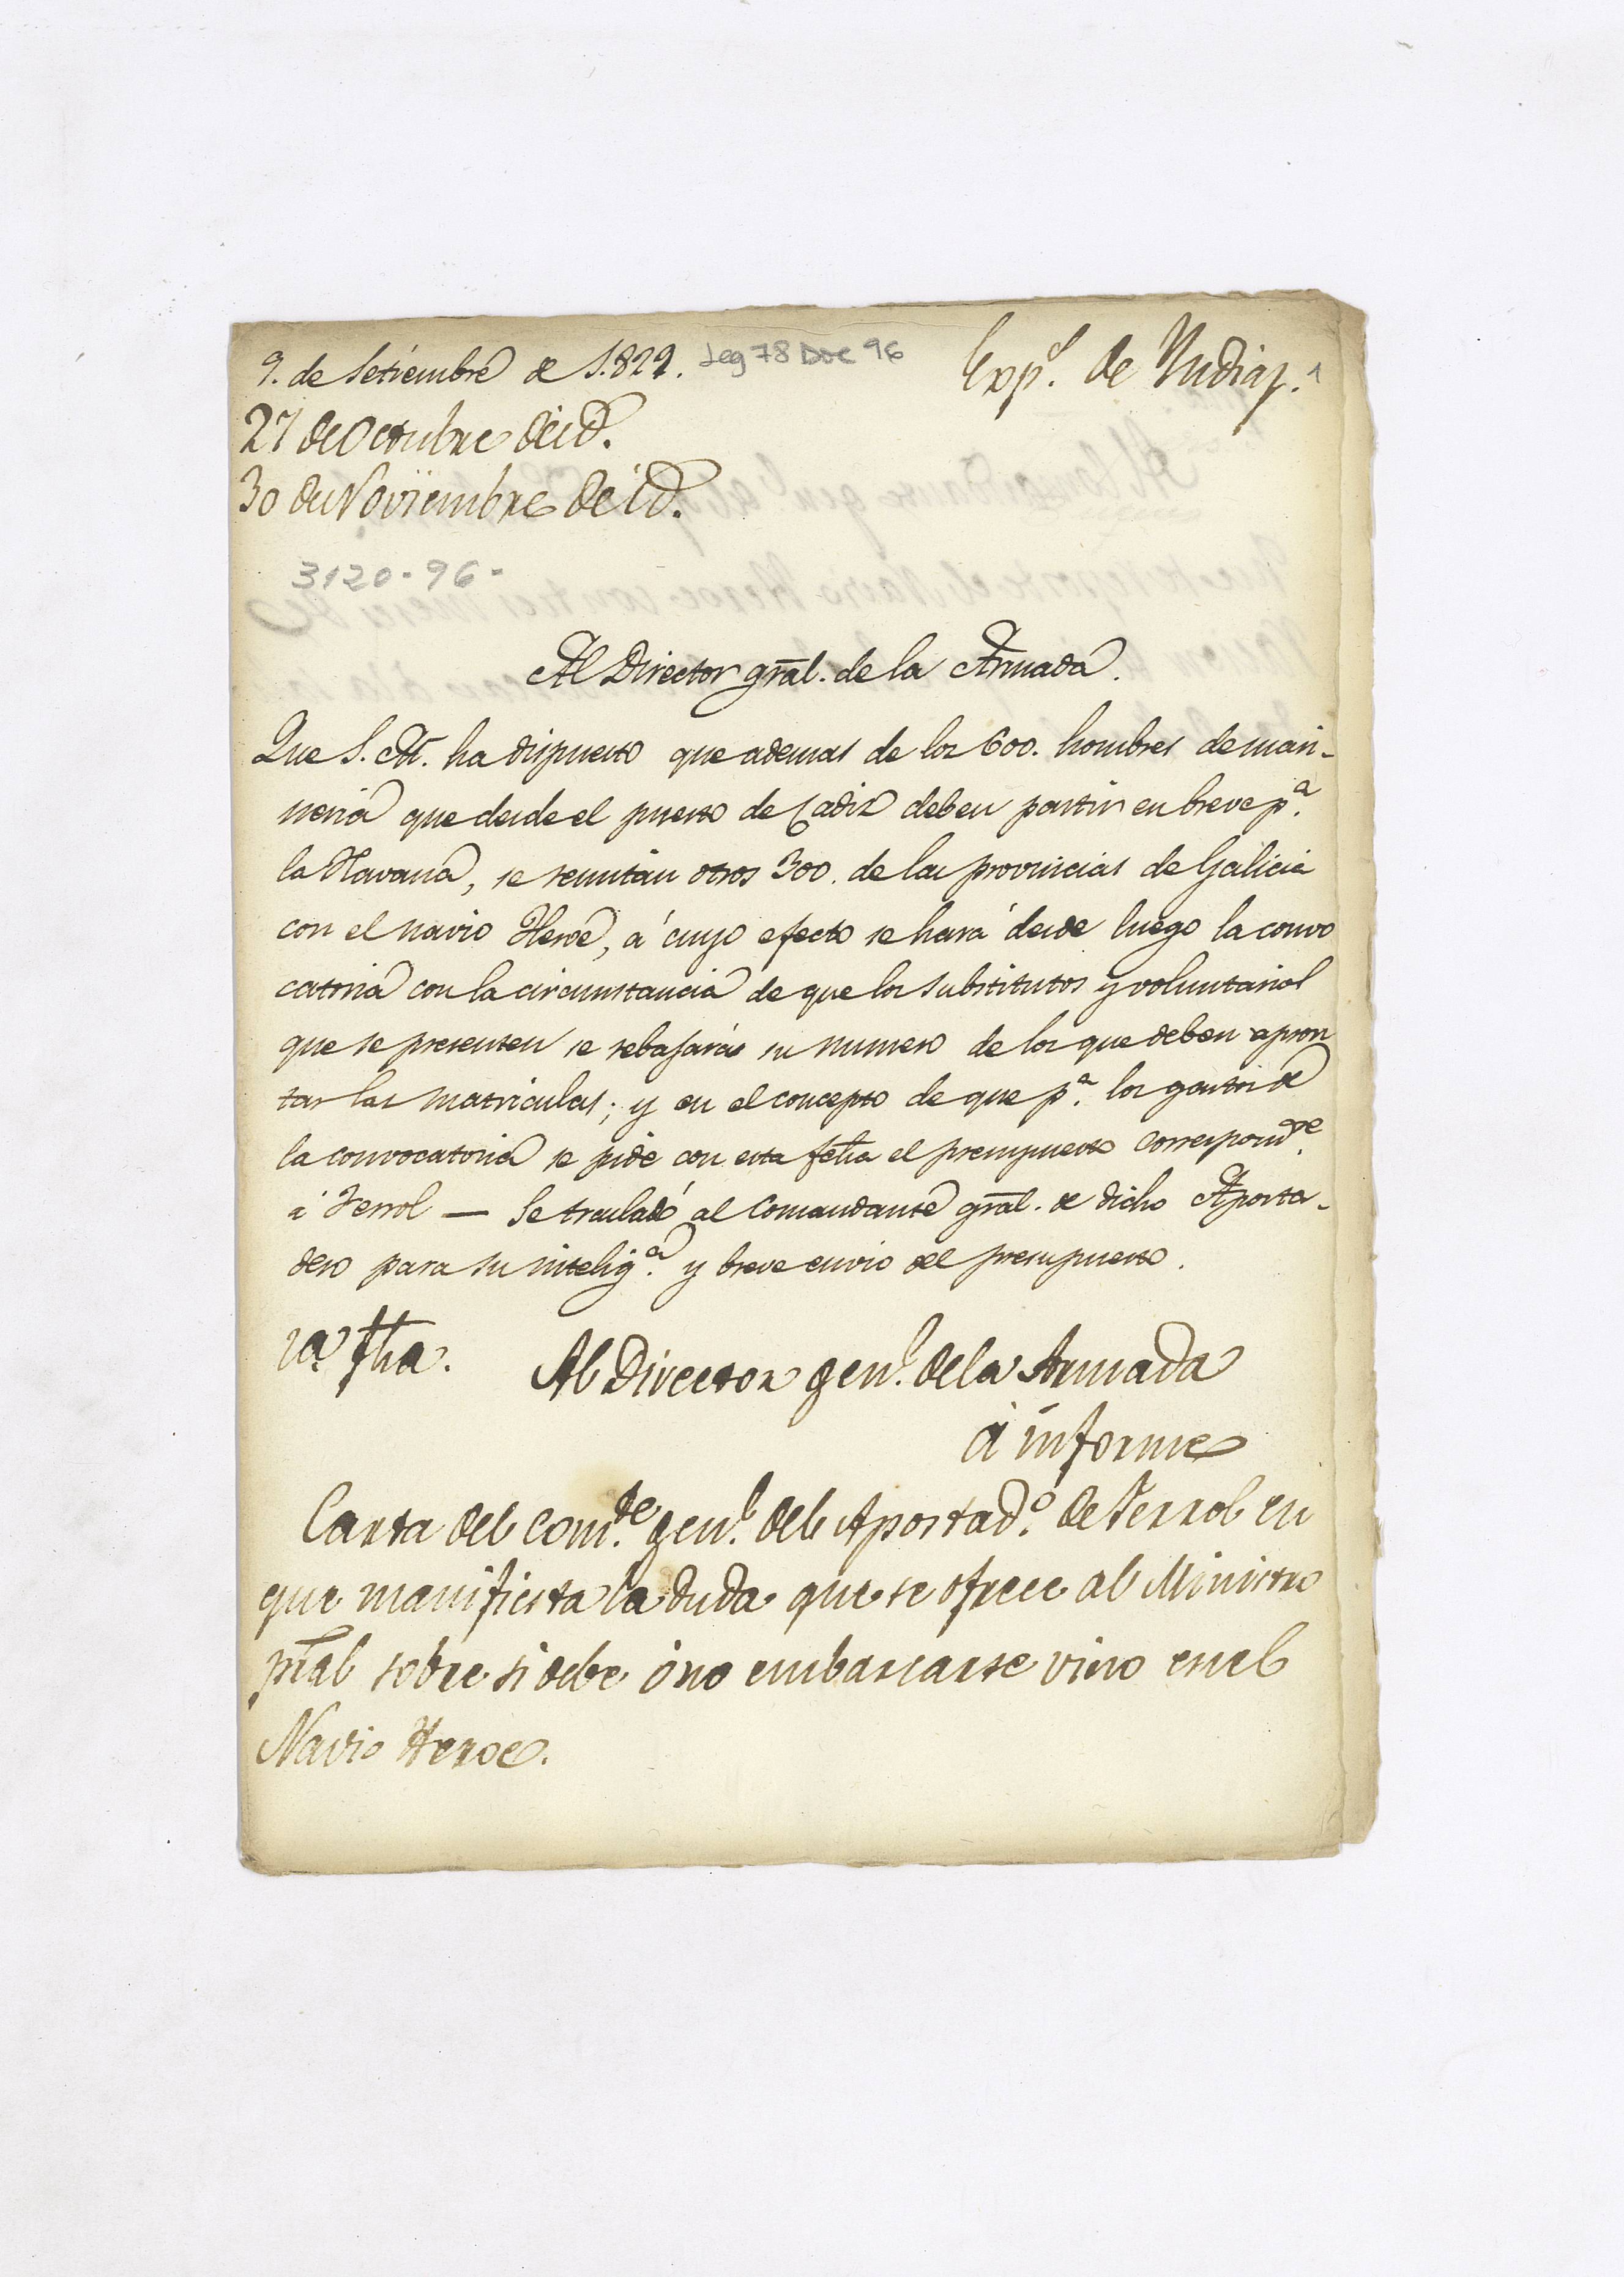 9. de Setiembre de 1.829. Leg 78 Doc 96
Expd. de Indias. 1
27 de Octubre de id.
30 de Noviembre de id.
3120-96-
Al Director gral. de la Armada.
Que S. M. ha dispuesto que ademas de los 600. hombres de mari-
neria que desde el puerto de Cadiz deben partir en breve pa.
la Havana, se remitan otros 300. de las provincias de Galicia
con el navio Heroe, á cuyo efecto se hará desde luego la convo
catoria con la circunstancia de que los substitutos y voluntarios
que se presenten se rebajarán su numero de los que deben apron
tar las matriculas; y en el concepto de que pa. los gastos de
la convocatoria se pide con esta fcha el presupuesto correspondte.
á Ferrol — Se trasladó al Comandante gral. de dicho Aposta-
dero para su inteliga. y breve envio del presupuesto.
fha. Al Director genl. de la Armada
á informe
Carta del Comte. genl. del Apostado. de Ferrol en
que manifiesta la duda que se ofrece al Ministro
pral sobre si debe ó no embarcarse vino en el
Navio Heroe.